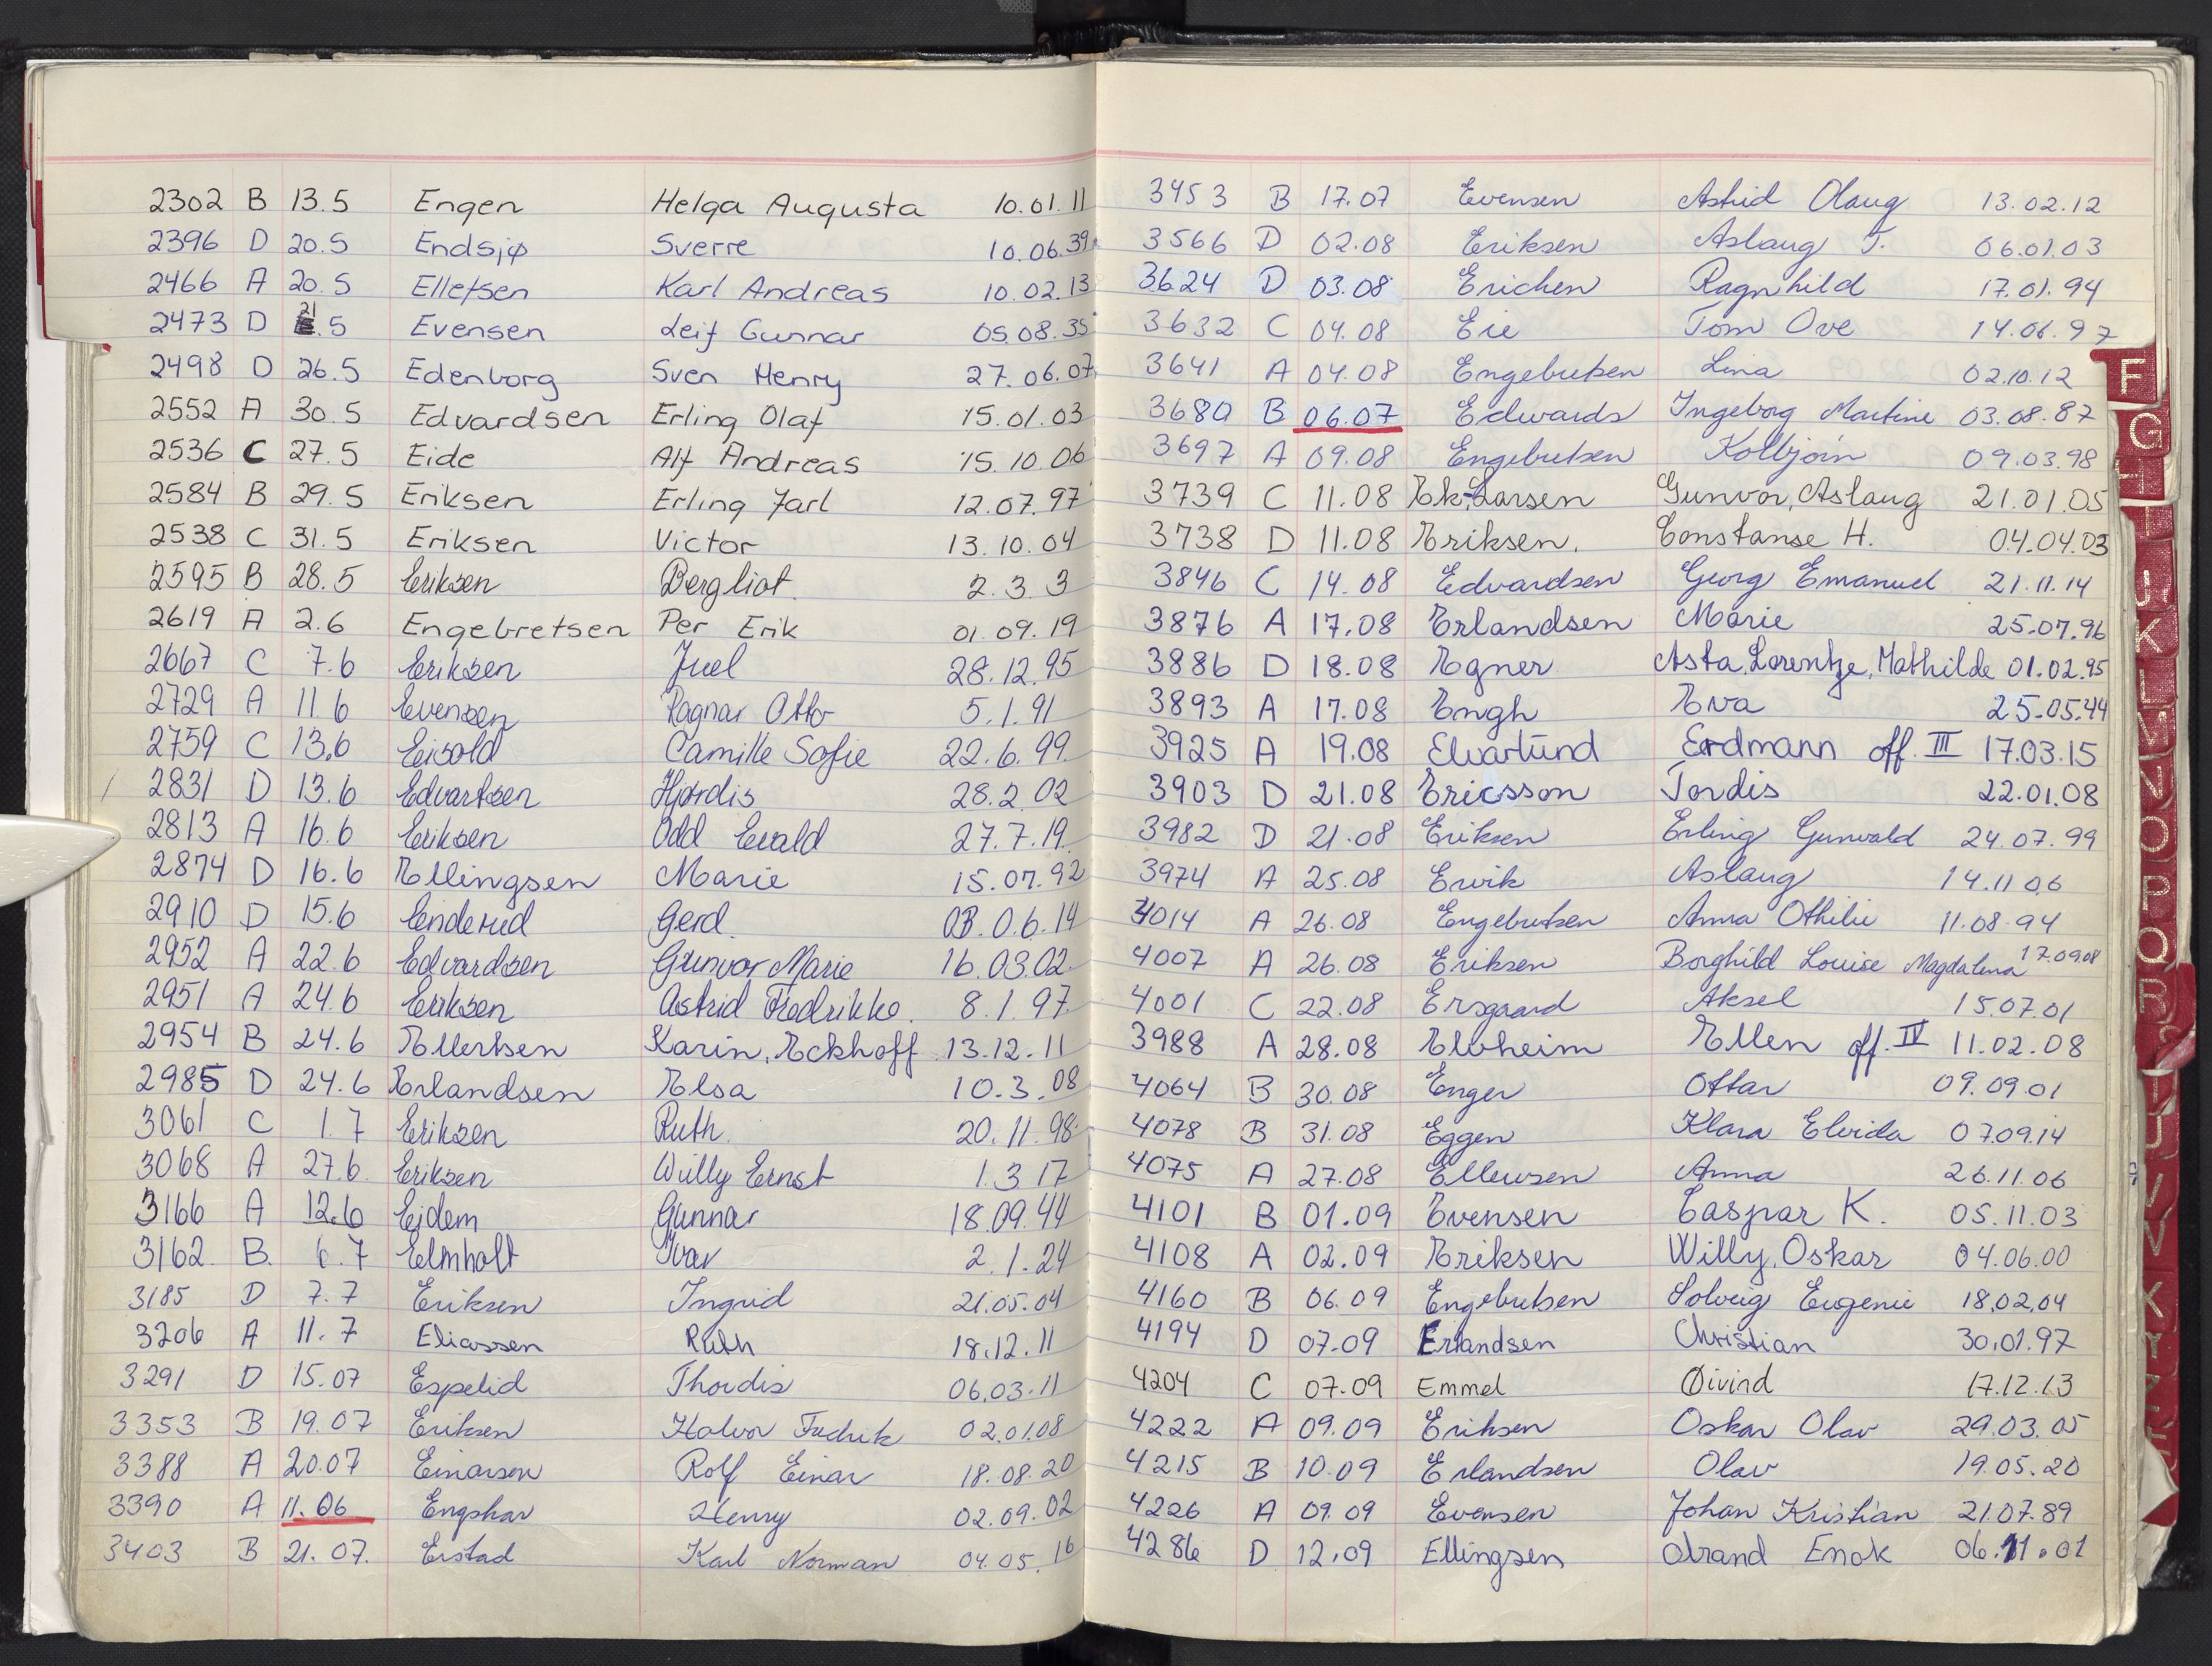 2302 B 13.5 Engen Helga Augusta 10.01.11
2396 D 20.5 Endsjø Sverre 10.06.39
2466 A 20.5 Elletsen Karl Andreas 10.02.13
2473 D 21.5 Evensen Leif Gunnar 05.08.35
2498 D 26.5 Edenborg Sven Henry 27.06.07
2552 A 30.5 Edvardsen Erling Olaf 15.01.03
2536 C 27.5 Eide Alf Andreas 15.10.06
2584 B 29.5 Eriksen Erling Jarl 12.07.97
2538 C 31.5 Eriksen Victor 13.10.04
2595 B 28.5 Eriksen Bergliot 2.3.3
2619 A 2.6 Engebretsen Per Erik 01.09.19
2667 C 7.6 Eriksen Juel 28.12.95
2729 A 11.6 Evensen Ragnar Otto 5.1.91
2759 C 13.6 Eisold Camille Sofie 22.6.99
2831 D 13.6 Edvartsen Hjørdis 28.2.02
2813 A 16.6 Eriksen Odd Evald 27.7.19
2874 D 16.6 Ellingsen Marie 15.07.92
2910 D 15.6 Enderud Gerd 03.06.14
2952 A 22.6 Edvardsen Gunvor Marie 16.03.02
2951 A 24.6 Eriksen Astrid Fredrikke 8.1.97
2954 B 24.6 Ellertsen Karin, Eckhoff 13.12.11
2985 D 24.6 Erlandsen Elsa 10.3.08
3061 C 1.7 Eriksen Ruth 20.11.98
3068 A 27.6 Eriksen Willy Ernst 1.3 17
3166 A 12.6 Eidem Gunnar 18.09.44
3162 B. 6.7 Elmholt Ivar 2.1.24
3185 D 7.7 Eriksen Ingrid 21.05.04
3206 A 11.7 Eliassen Ruth 18.12.11
3291 D 15.07 Espelid Thordis 06.03.11
3353 B 19.07 Eriksen Halvor Fredrik 02.01.08
3388 A 20.07 Einarsen Rolf Einar 18.08.20
3390 A 11.06 Henry 02.09.02
3403 B 21.07. Erstad Karl Norman 04.05.16
3453 B 17.07 Evensen Astrid Olaug 13.02.12
3566 D 02.08 Eriksen Aslaug T. 06.01.03
3624 D 03.08 Erichen Ragnhild 17.01.94
3632 C 04.08 Eie Tom Ove 14.06.97
3641 A 04.08 Engebretsen Lina 02.10.12
3680 B 06.07 Edwards Ingeborg Martine 03.08.87
3697 A 09.08 Engebretsen Kolbjørn 09.03.98
3739 C 11.08 Ek-Larsen Gunvor, Aslaug 21.01.05
3738 D 11.08 Eriksen. Constanse H. 04.04.03
3846 C 14.08 Edvardsen Georg Emanuel 21.11.14
3876 A 17.08 Erlandsen Marie 25.07.96
3886 D 18.08 Egner Asta, Lorentze, Mathilde 01.02.95
3893 A 17.08 Engh Eva 25.05.44
3925 A 19.08 Elvartund Erdmann off. III 17.03.15
3903 D 21.08 Ericsson Tordis 22.01.08
3982 D 21.08 Eriksen Erling Gunvald 24.07.99
3974 A 25.08 Ervik Aslaug 14.11 06
4014 A 26.08 Engebretsen Anna Othilie 11.08.94
4007 A 26.08 Eriksen Borghild Louise Magdalena 17.09.08
4001 C 22.08 Ersgaard Aksel 15.07.01
3988 A 28.08 Elvheim Ellen off. IV 11.02.08
4064 B 30.08 Enger Ottar 09.09.01
4078 B 31.08 Eggen Klara Elvida 07.09.14
4075 A 27.08 Ellewsen Anna 26.11.06
4101 B 01.09 Evensen Caspar K. 05.11.03
4108 A 02.09 Eriksen Willy, Oskar 04.06.00
4160 B 06.09 Engebretsen Solveig Eugenie 18.02.04
4194 D 07.09 Erlandsen Christian 30.01.97
4204 C 07.09 Emmel Øivind 17.12.13
4222 A 09.09 Eriksen Oskar Olav 29.03.05
4215 B 10.09 Erlandsen Olav 19.05.20
4226 A 09.09 Evensen Johan Kristian 21.07.89
4286 D 12.09 Ellingsen Enok 06.11.01
F
G
H
I
J
K
L
M
N
O
P
Q
R